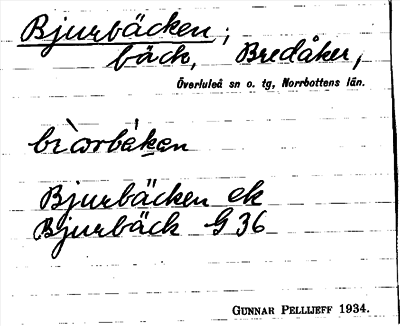 Bjurbäcken;
bäck, Bredåker,
Överluleå sn o. tg, Norrbottens län.
bìωrbáken
Bjurbäcken ek
Bjurbäck G 36
GUNNAR PELLIJEFF 1934.